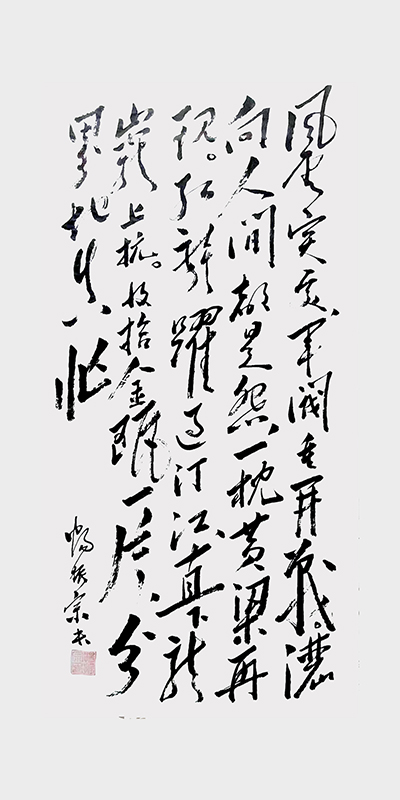 風云突变军阀重开戰灑
向人间都是怨一枕黄粱再
现。红旗躍过汀江直下龙
岩上杭。收拾金瓯一片分
田分地真忙
振宗书